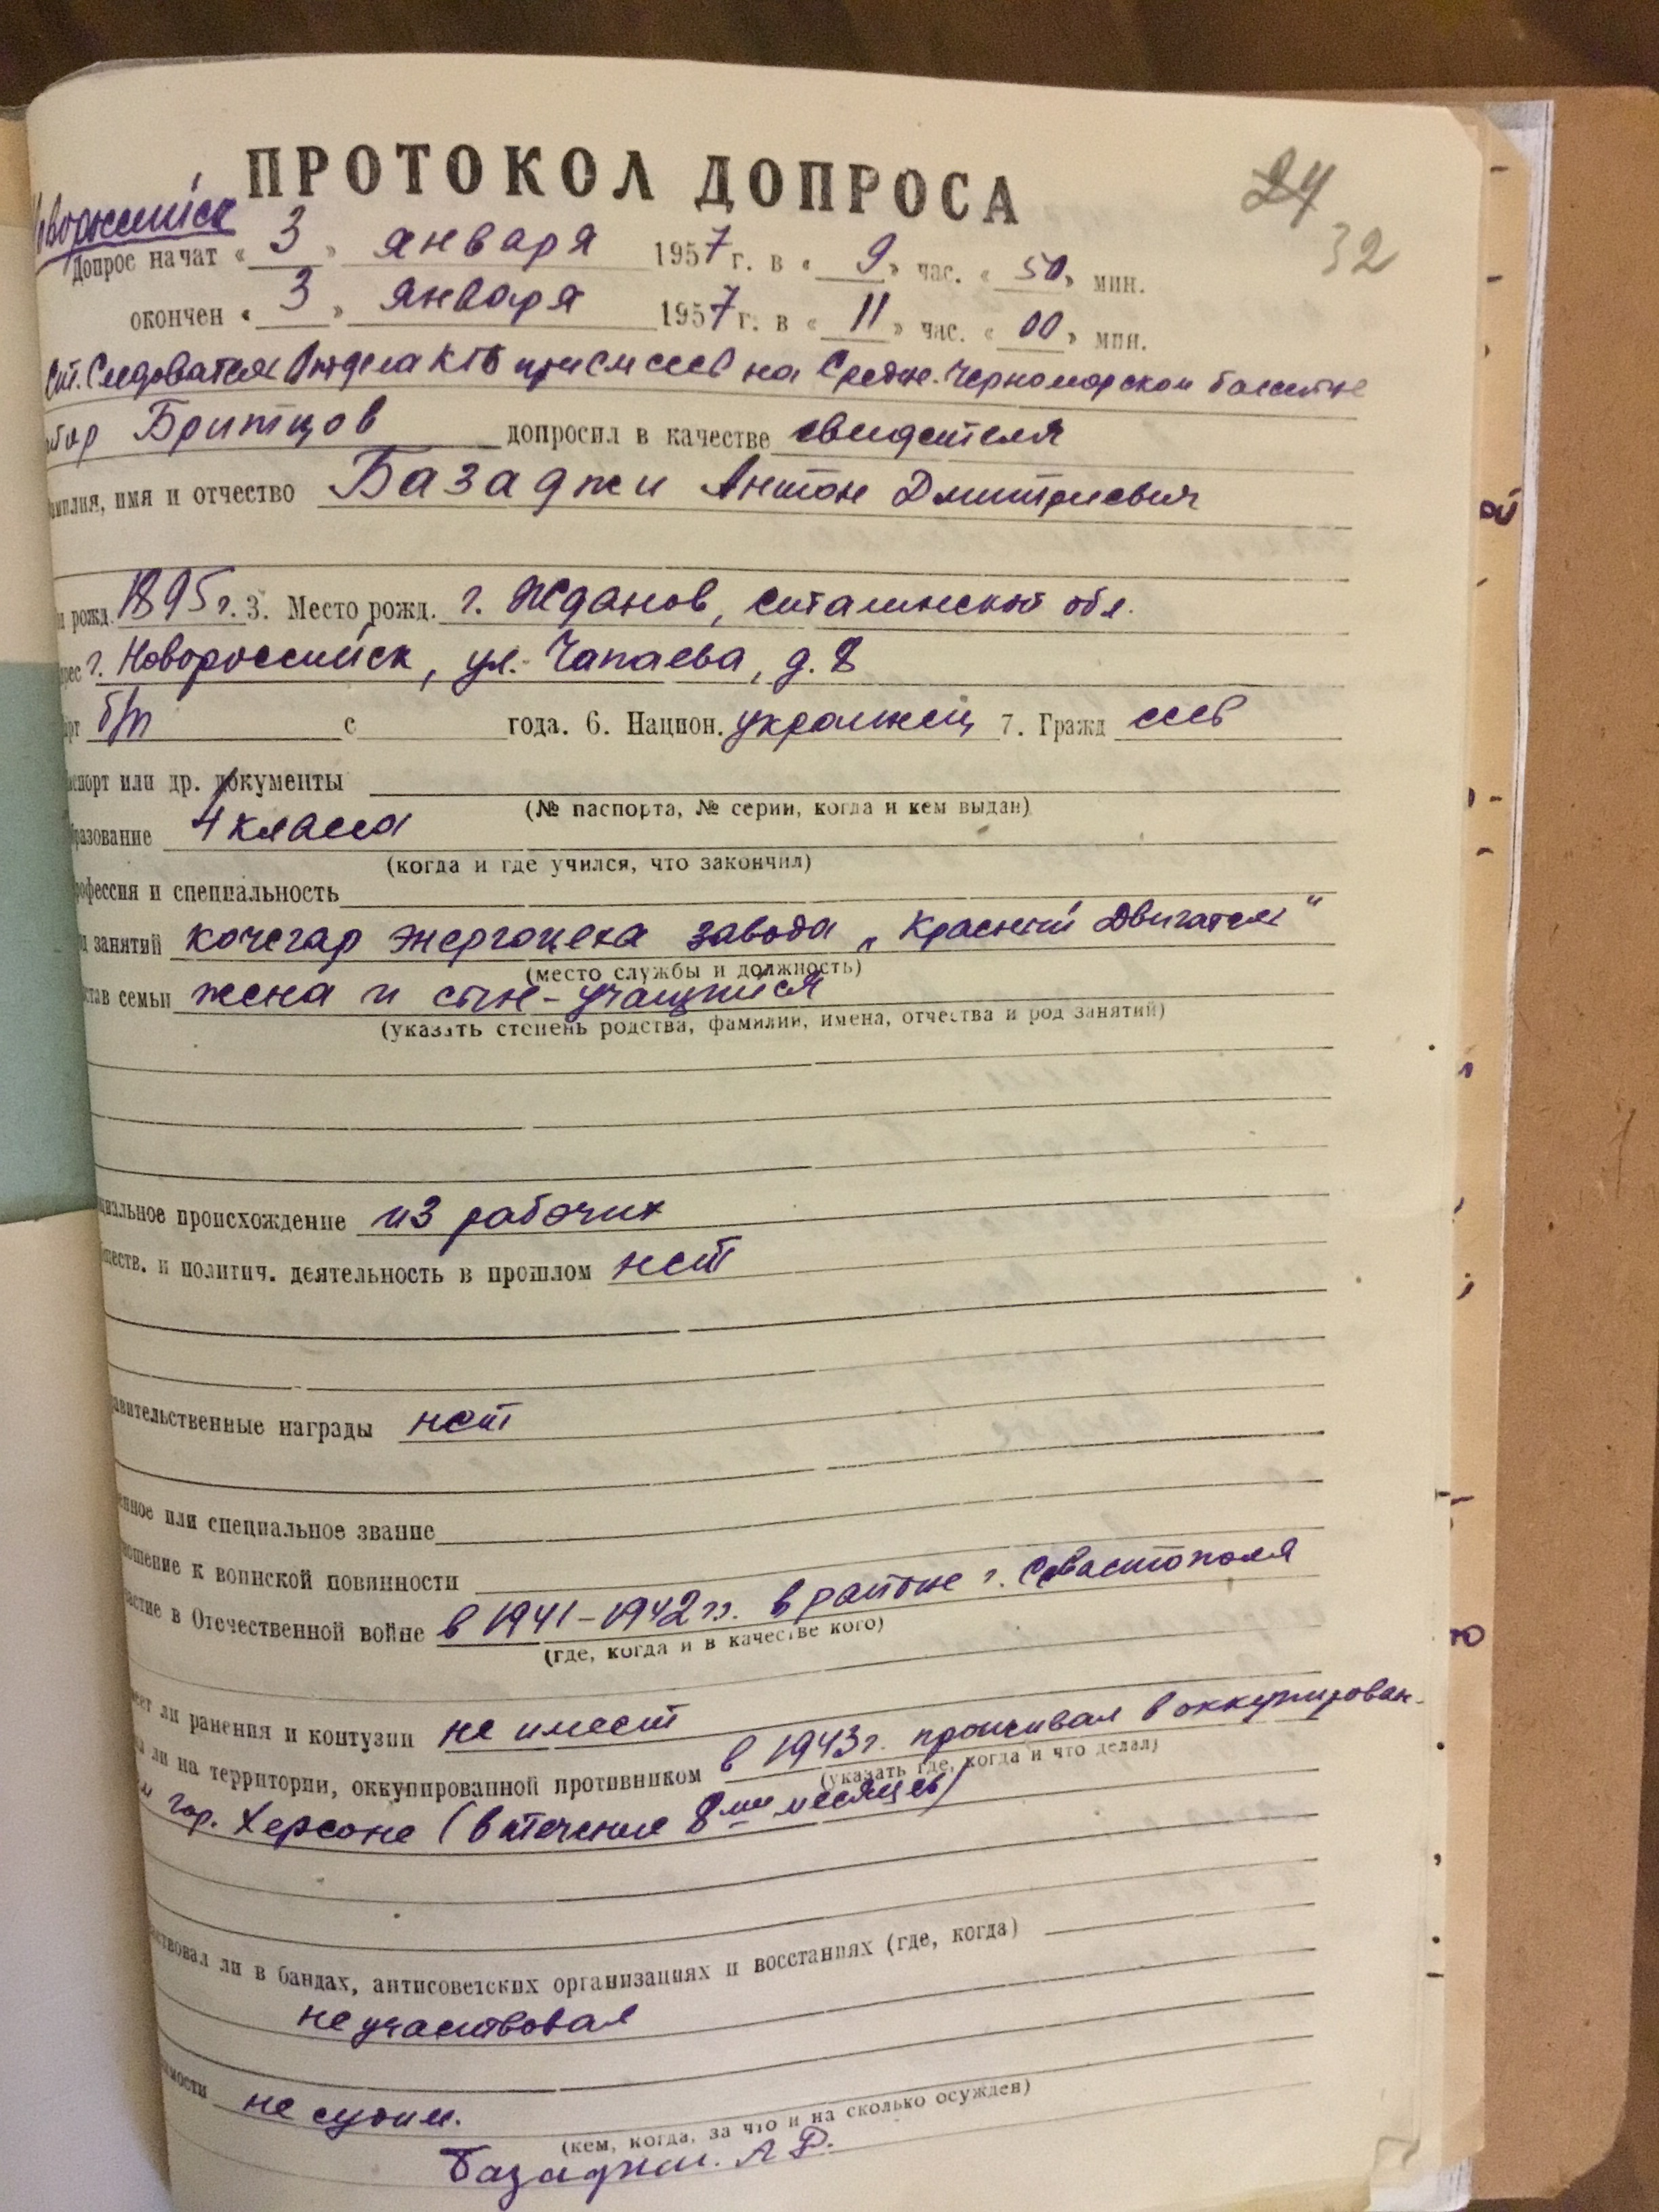 ПРОТОКОЛ ДОПРОСА
24
32
ворассийск
Допрос начат «3» января 1957 г. в «9» час. «50» мин.
окончен «3» января 1957 г. в «11» час. «00» мин.
Ст. Следователь Отдела КГБ при СМ СССР на Средне-Черноморском бассейне
Бритцов допросил в качестве свидетеля
амилия, имя и отчество Базаджи Антон Дмитриевич
рожд. 1895 г. 3. Место рожд. г. Жданов, Сталинской обл.
рес г. Новороссийск, ул. Чапаева, д. 8
рт б/п с года. 6. Национ. украинец 7. Гражд СССР
спорт или др. документы
(№ паспорта, № серии, когда и кем выдан)
разование 4 класса
(когда и где учился, что закончил)
рофессия и специальность
д занятий кочегар энергоцеха завода „Красный Двигатель"
(место службы и должность)
став семьи жена и сын - учащийся
(указать степень родства, фамилии, имена, отчества и род занятий)
циальное происхождение из рабочих
ществ. и политич. деятельность в прошлом нет
равительственные награды нет
енное или специальное звание
ношение к воинской повинности
астие в Отечественной войне в 1941-1942 гг. в районе г. Севастополя
(где, когда и в качестве кого)
меет ли ранения и контузии не имеет
ли на территории, оккупированной противником в 1943 г. проживал в оккупирован-
(указать где, когда и что делал)
м гор. Херсоне (в течение 8ми месяцев)
аствовал ли в бандах, антисоветских организациях и восстаниях (где, когда)
не участвовал
мости не судим.
(кем, когда, за что и на сколько осужден)
Базаджи. А Д.